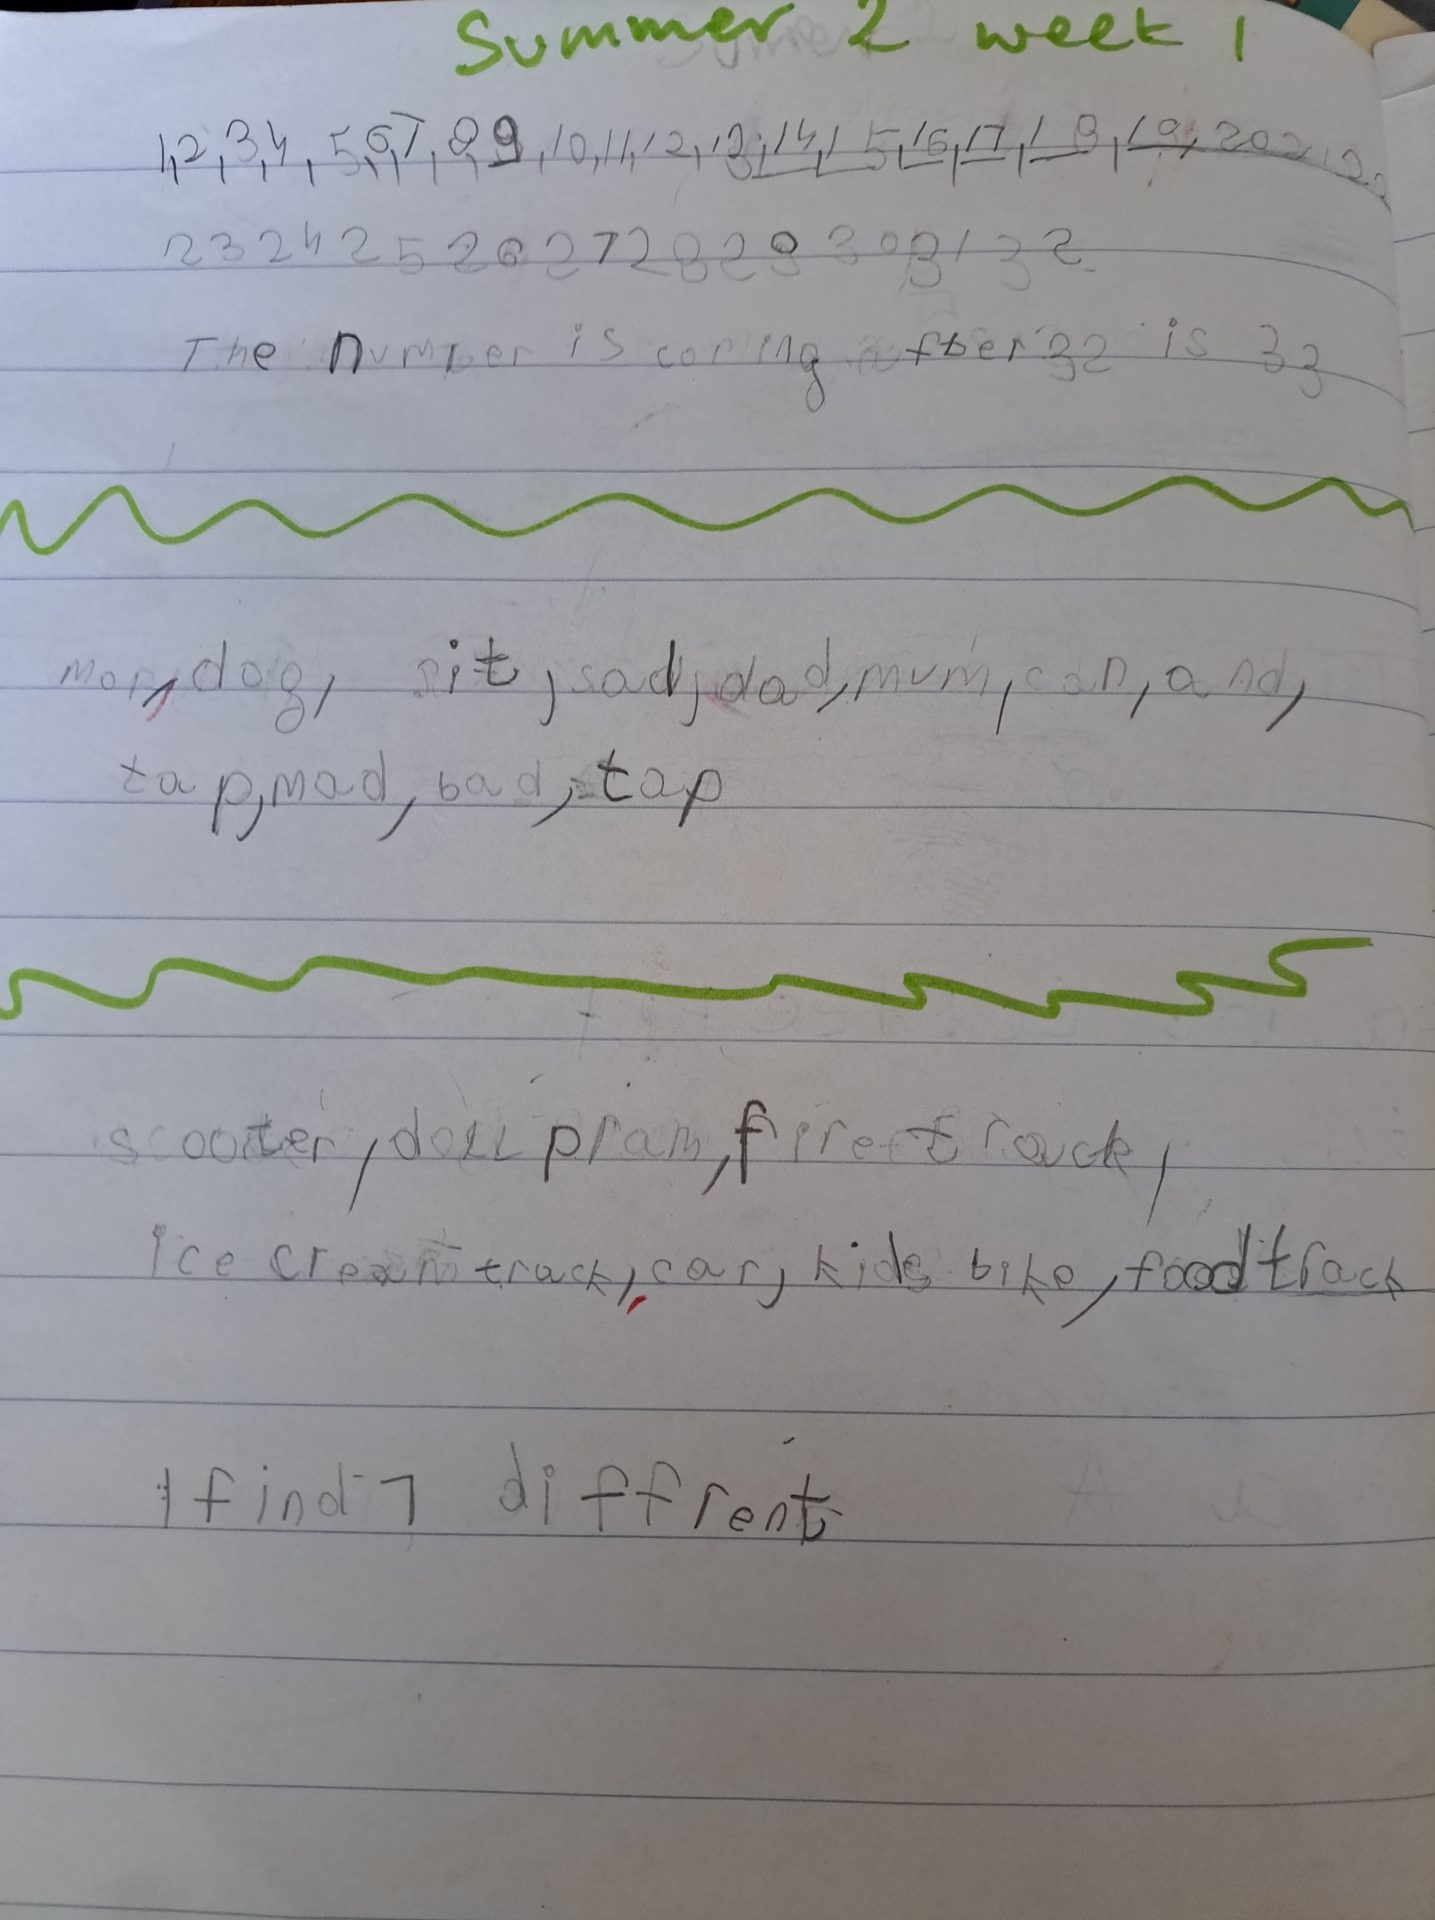 Summer 2 week 1
1,2,3,4,5,6,7,8,9,10,11,12,13,14,15,16,17,18,19,20 21,2
23 24 25 26 27 28 29 30 31 32
The number is coming after 32 is 33
dog, sit, sad, dad, mum, can, and,
tap, mad, bad, tap
scooter, doll pram, fire track,
ice cream track, car, kids bike, food track
I find 7 diffrent